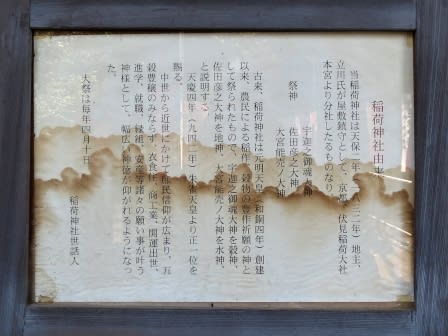 稲荷神社由来
当稲荷神社は天保二年(一八三一年)地主、
立川氏が屋敷鎮守として、京都、伏見稲荷大社
本宮より分社したるものなり。
祭神
宇迦之御魂大神
佐田彦之大神
大宮能売ノ大神
古来、稲荷神社は元明天皇(和銅四年)創建
以来、農民による稲作、穀物の豊作祈願の神と
して祭られたもので、宇迦之御魂大神を穀神、
佐田彦之大神を地神、大宮能売ノ大神を水神、
と説明する。
天慶四年(九四二年)朱雀天皇より正一位を
賜る。
中世から近世にかけて庶民信仰が広まり、五
穀豊穣のみならず、衣食住、商工業、開運出世、
進学、就職、縁組、安産等諸々の願い事が叶う
神様として、幅広く神徳が仰がれるようになっ
た。
大祭は毎年四月一日
稲荷神社世話人